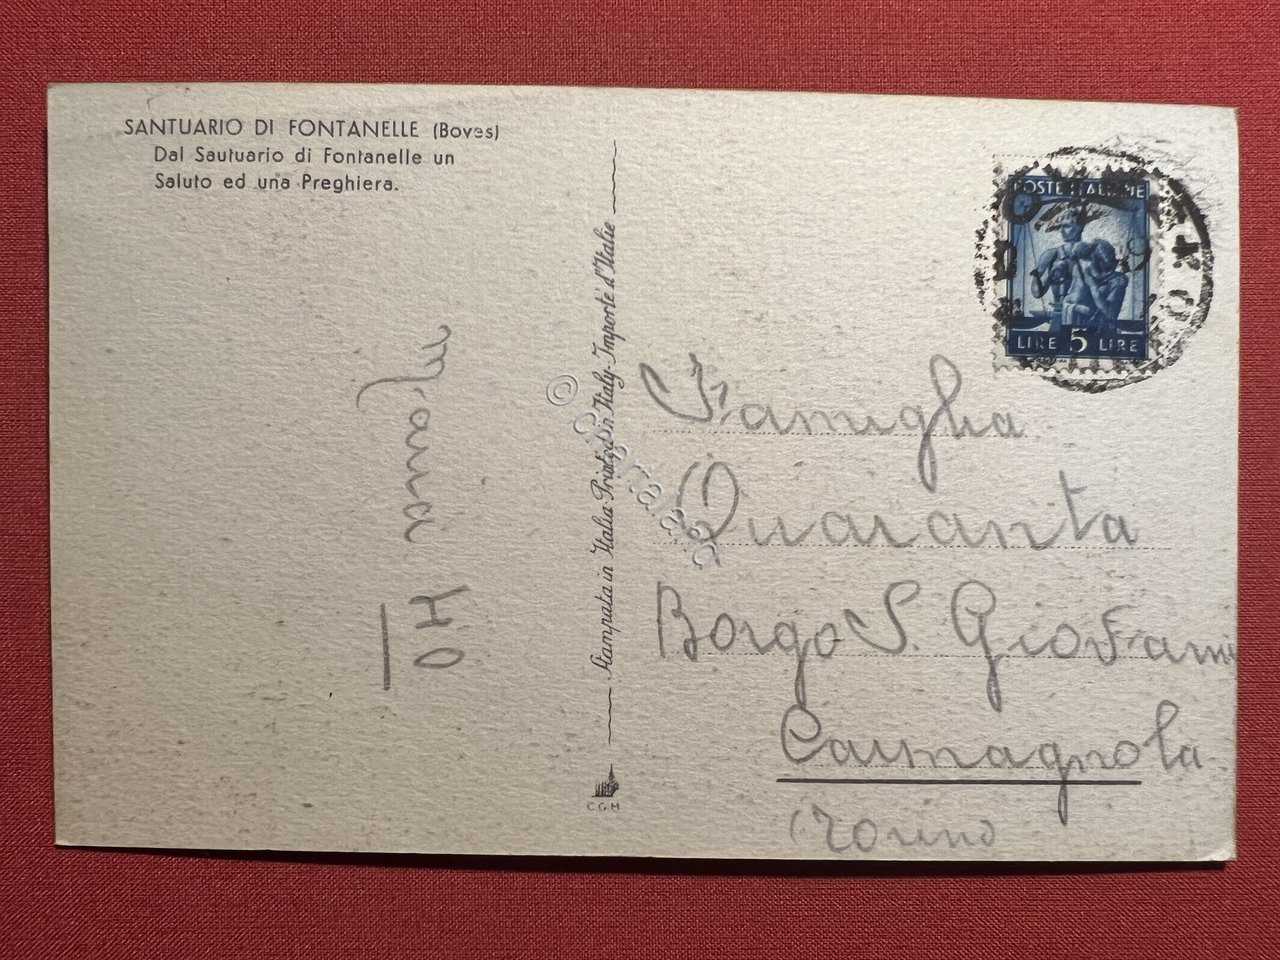 SANTUARIO DI FONTANELLE (Boves)
Dal Sautuario di Fontanelle un
Saluto ed una Preghiera.
POSTE ITALIANE
LIRE 5 LIRE
Stampata in Italia-Printed in Italy-Importé d'Italie
© Cartalano
CGM
Famiglia
Quaranta
Borgo S. Giovanni
Carmagnola
(Torino